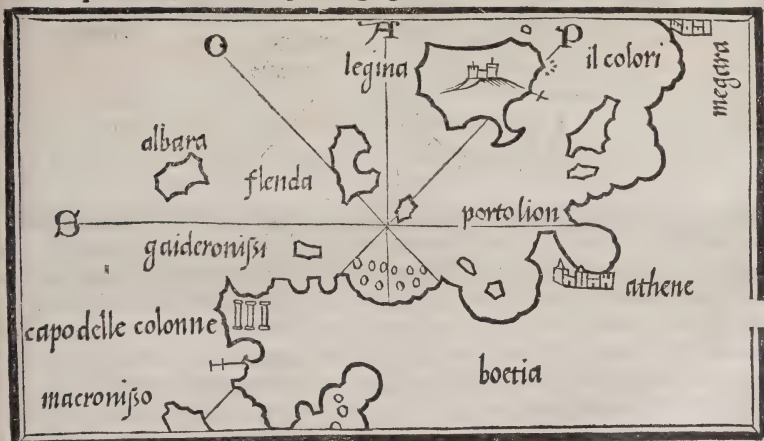 O
A
P
legina
il colori
megara
albara
flenda
S
porto lion
gaideronissi
athene
capo delle colonne
boetia
macronisso